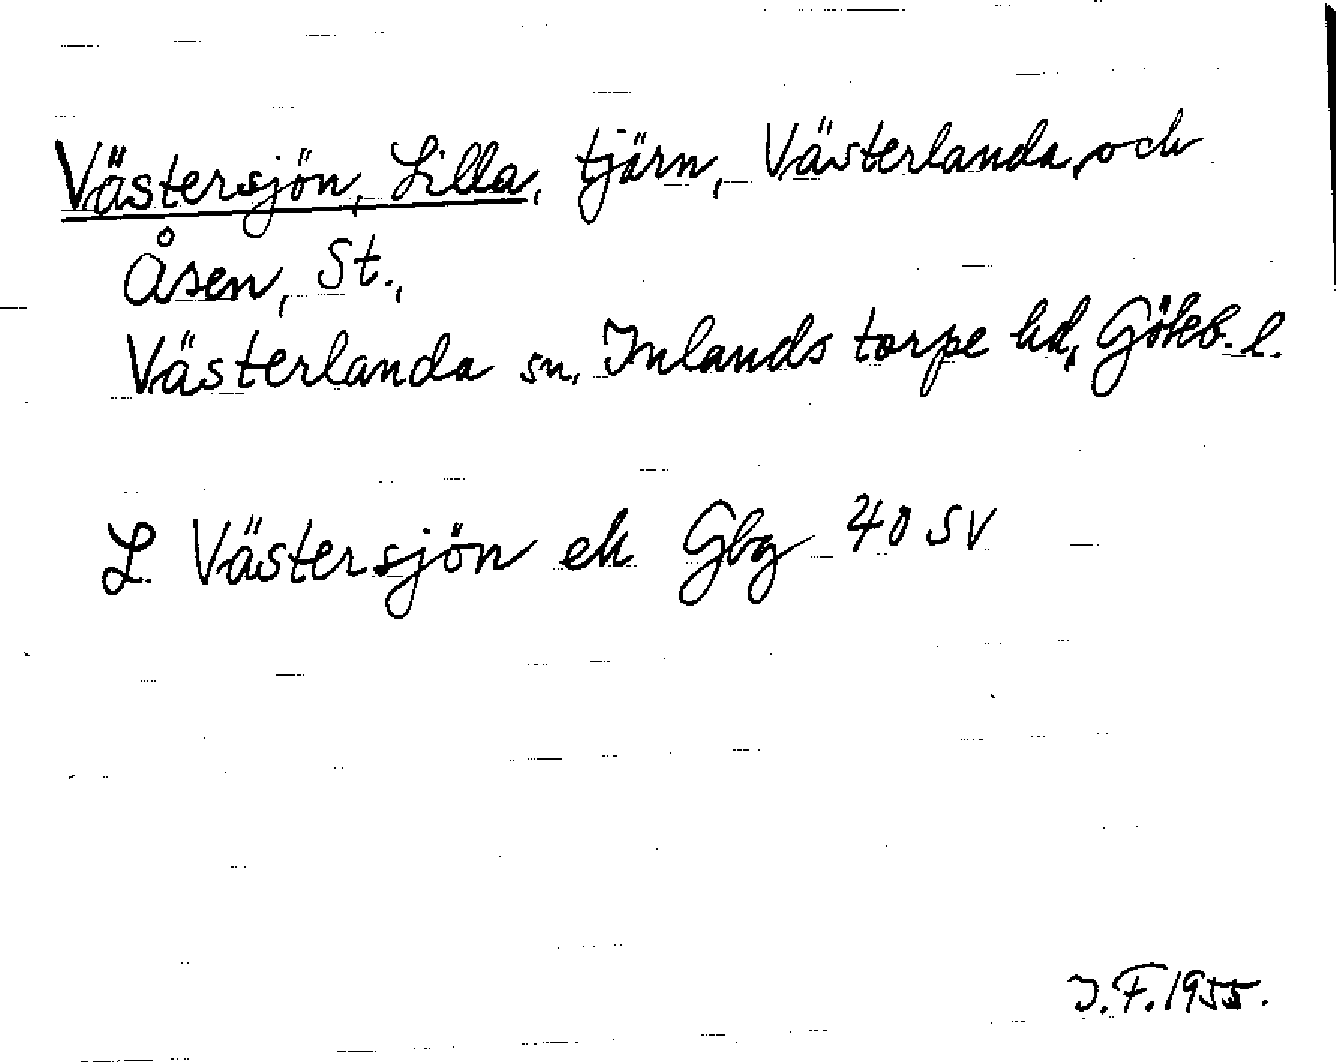 Västersjön, Lilla, tjärn, Västerlanda, och
Åsen, St.,
Västerlanda sn, Inlands torpe hd, Göteb. l.
L Västersjön ek Gbg 40 SV
I.F. 1955.